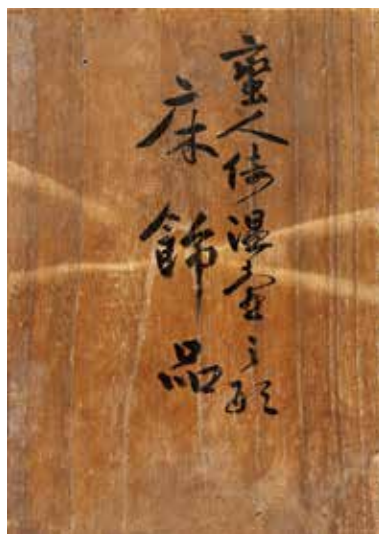 蛮人倚温壷之形
床飾品